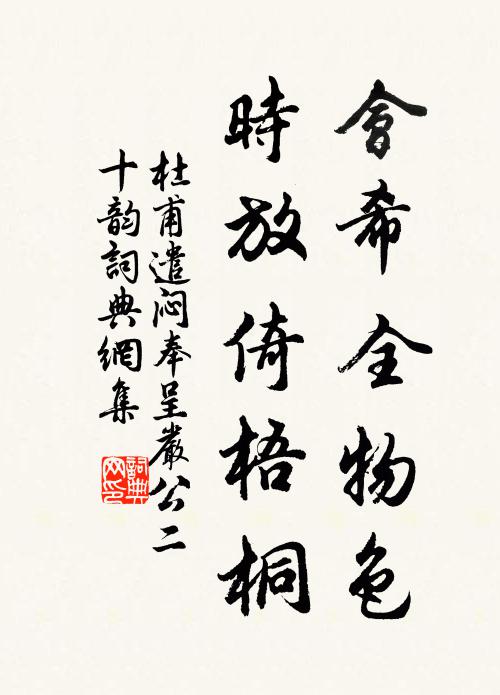 會希全物色
時放倚梧桐
杜甫遣闷奉呈嚴公二
十韵詞典網集
詞典
网印